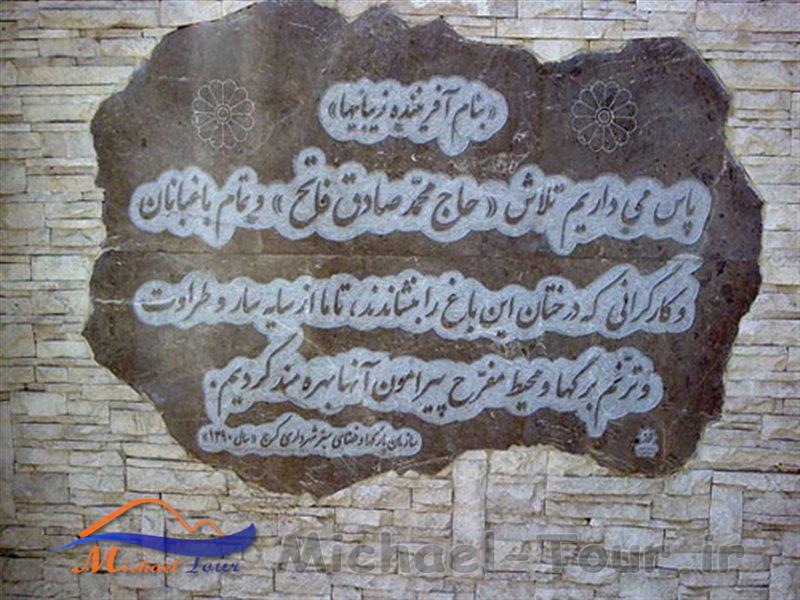 «بنام آفریننده زیبائیها»
پاس می داریم تلاش «حاج محمّد صادق فاتح» و تمام باغبانان
و کارگرانی که درختان این باغ را بنشاندند، تا ما از سایه سار و طراوت
و ترنّم برگها و محیط مفرّح پیرامون آنها بهره مند گردیم.
سازمان پارکها و فضای سبز شهرداری کرج «سال ۱۳۹۰»
Michael Tour
Michael-Tour.ir